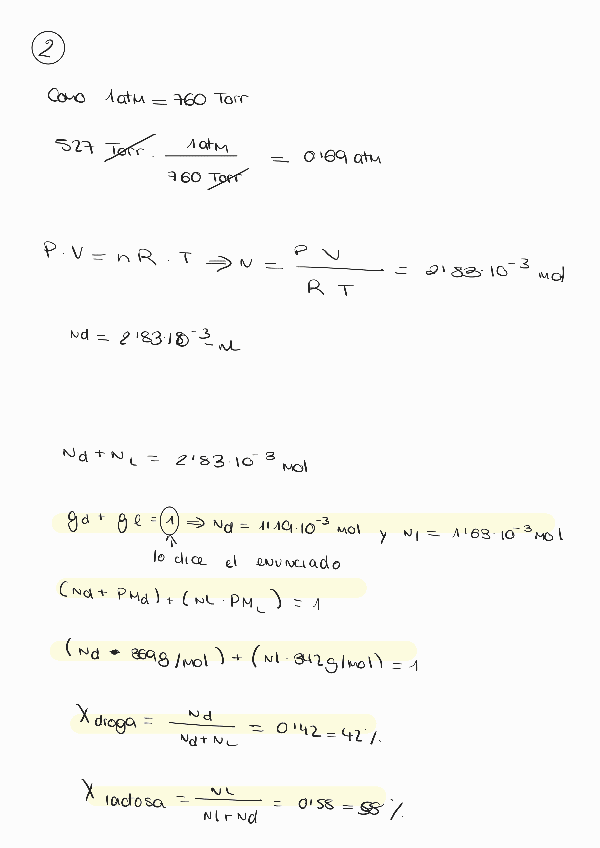 2
Como 1atm = 760 Torr
527 Torr · 1atm / 760 Torr = 0'69 atm
P · V = n R · T ⇒ N = P V / R T = 2'83·10⁻³ mol
Nd = 2'83·10⁻³ - NL
Nd + NL = 2'83·10⁻³ mol
gd + gl = 1 ⇒ Nd = 1'19·10⁻³ mol y Nl = 1'63·10⁻³ mol
lo dice el enunciado
(Nd + PMd) + (NL · PML) = 1
(Nd · 369g/mol) + (Nl · 342g/mol) = 1
X droga = Nd / Nd + NL = 0'42 = 42%
X ladosa = NL / Nl + Nd = 0'58 = 58%